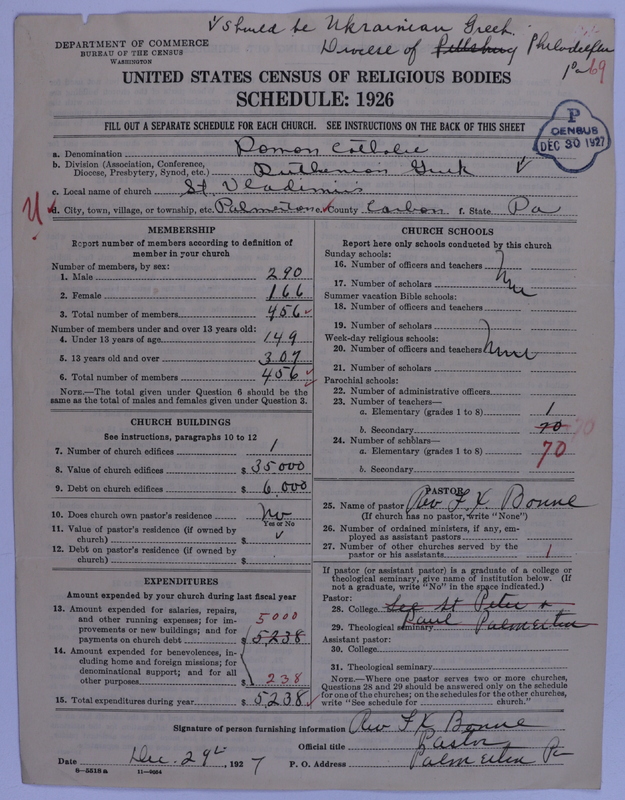 ✓ Should be Ukrainian Greek
Diocese of Pittsburg Philadelphia
Pa 69
DEPARTMENT OF COMMERCE
BUREAU OF THE CENSUS
WASHINGTON
UNITED STATES CENSUS OF RELIGIOUS BODIES
SCHEDULE: 1926
FILL OUT A SEPARATE SCHEDULE FOR EACH CHURCH. SEE INSTRUCTIONS ON THE BACK OF THIS SHEET
P
CENSUS
DEC 30 1927
a. Denomination Roman Catholic
b. Division (Association, Conference, Diocese, Presbytery, Synod, etc.) Ruthenian Greek ✓
c. Local name of church St. Vladimirs
d. City, town, village, or township, etc. Palmerton e. County Carbon f. State Pa
MEMBERSHIP
Report number of members according to definition of
member in your church
Number of members, by sex:
1. Male 290
2. Female 166
3. Total number of members 456 ✓
Number of members under and over 13 years old:
4. Under 13 years of age 149
5. 13 years old and over 307
6. Total number of members 456 ✓
NOTE.—The total given under Question 6 should be the
same as the total of males and females given under Question 3.
CHURCH BUILDINGS
See instructions, paragraphs 10 to 12
7. Number of church edifices 1
8. Value of church edifices $ 35000
9. Debt on church edifices $ 6,000
10. Does church own pastor's residence No
Yes or No
11. Value of pastor's residence (if owned by
church) $ ✓
12. Debt on pastor's residence (if owned by
church) $
EXPENDITURES
Amount expended by your church during last fiscal year
13. Amount expended for salaries, repairs,
and other running expenses; for im-
provements or new buildings; and for
payments on church debt $ 5000 5238
14. Amount expended for benevolences, in-
cluding home and foreign missions; for
denominational support; and for all
other purposes $ 238
15. Total expenditures during year $ 5238 ✓
CHURCH SCHOOLS
Report here only schools conducted by this church
Sunday schools:
16. Number of officers and teachers None
17. Number of scholars
Summer vacation Bible schools:
18. Number of officers and teachers
19. Number of scholars
Week-day religious schools:
20. Number of officers and teachers None
21. Number of scholars
Parochial schools:
22. Number of administrative officers
23. Number of teachers—
a. Elementary (grades 1 to 8) 1
b. Secondary 70 70
24. Number of scholars—
a. Elementary (grades 1 to 8) 70
b. Secondary
PASTOR
25. Name of pastor Rev F. X. Bonne
(If church has no pastor, write "None")
26. Number of ordained ministers, if any, em-
ployed as assistant pastors
27. Number of other churches served by the
pastor or his assistants 1
If pastor (or assistant pastor) is a graduate of a college or
theological seminary, give name of institution below. (If
not a graduate, write "No" in the space indicated.)
Pastor:
28. College See St Peter &
29. Theological seminary Paul Palmerton
Assistant pastor:
30. College
31. Theological seminary
NOTE.—Where one pastor serves two or more churches,
Questions 28 and 29 should be answered only on the schedule
for one of the churches; on the schedules for the other churches,
write "See schedule for church."
Signature of person furnishing information Rev F. X. Bonne
Official title Pastor
Date Dec. 29, 1927 P. O. Address Palmerton Pa
6—5518 a 11—9024